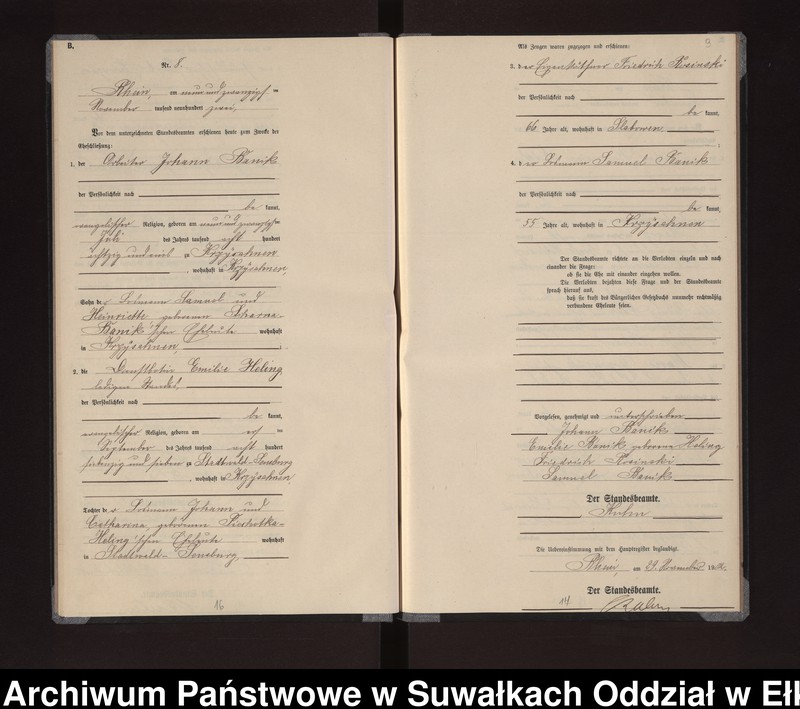 B.
Nr. 8.
Rhein, am neun und zwanzigsten
November tausend neunhundert zwei.
Vor dem unterzeichneten Standesbeamten erschienen heute zum Zweck der
Eheschließung:
1. der Arbeiter Johann Banik
der Persönlichkeit nach
be kannt,
evangelischer Religion, geboren am neun und zwanzigsten
Juli des Jahres tausend acht hundert
achtzig und eins zu Krzysahnen
, wohnhaft in Krzysahnen,
Sohn de r Losmann Samuel und
Heinriette geborenen
Banik'schen Eheleute wohnhaft
in Krzysahnen,
2. die Emilie Heling
ledigen Standes,
der Persönlichkeit nach
be kannt,
evangelischer Religion, geboren am
September des Jahres tausend acht hundert
siebenzig und sieben zu Stadtwald-Sensburg
, wohnhaft in Krzysahnen
Tochter de r Losmann Johann und
Catharina, geborenen
Heling'schen Eheleute wohnhaft
in Stadtwald-Sensburg,
16
9
Als Zeugen waren zugezogen und erschienen:
3. d er Eigenkäthner Friedrich Kosinski
der Persönlichkeit nach
be kannt,
66 Jahre alt, wohnhaft in Slabowen,
4. d er Losmann Samuel Banik
der Persönlichkeit nach
be kannt,
55 Jahre alt, wohnhaft in Krzysahnen
Der Standesbeamte richtete an die Verlobten einzeln und nach
einander die Frage:
ob sie die Ehe mit einander eingehen wollen.
Die Verlobten bejahten diese Frage und der Standesbeamte
sprach hierauf aus,
daß sie kraft des Bürgerlichen Gesetzbuchs nunmehr rechtmäßig
verbundene Eheleute seien.
Vorgelesen, genehmigt und unterschrieben
Johann Banik
Emilie Banik geborene Heling
Friedrich Kosinski
Samuel Banik
Der Standesbeamte.
Die Uebereinstimmung mit dem Hauptregister beglaubigt.
Rhein, am 29. November 1902.
Der Standesbeamte.
14
Archiwum Państwowe w Suwałkach Oddział w Ełk